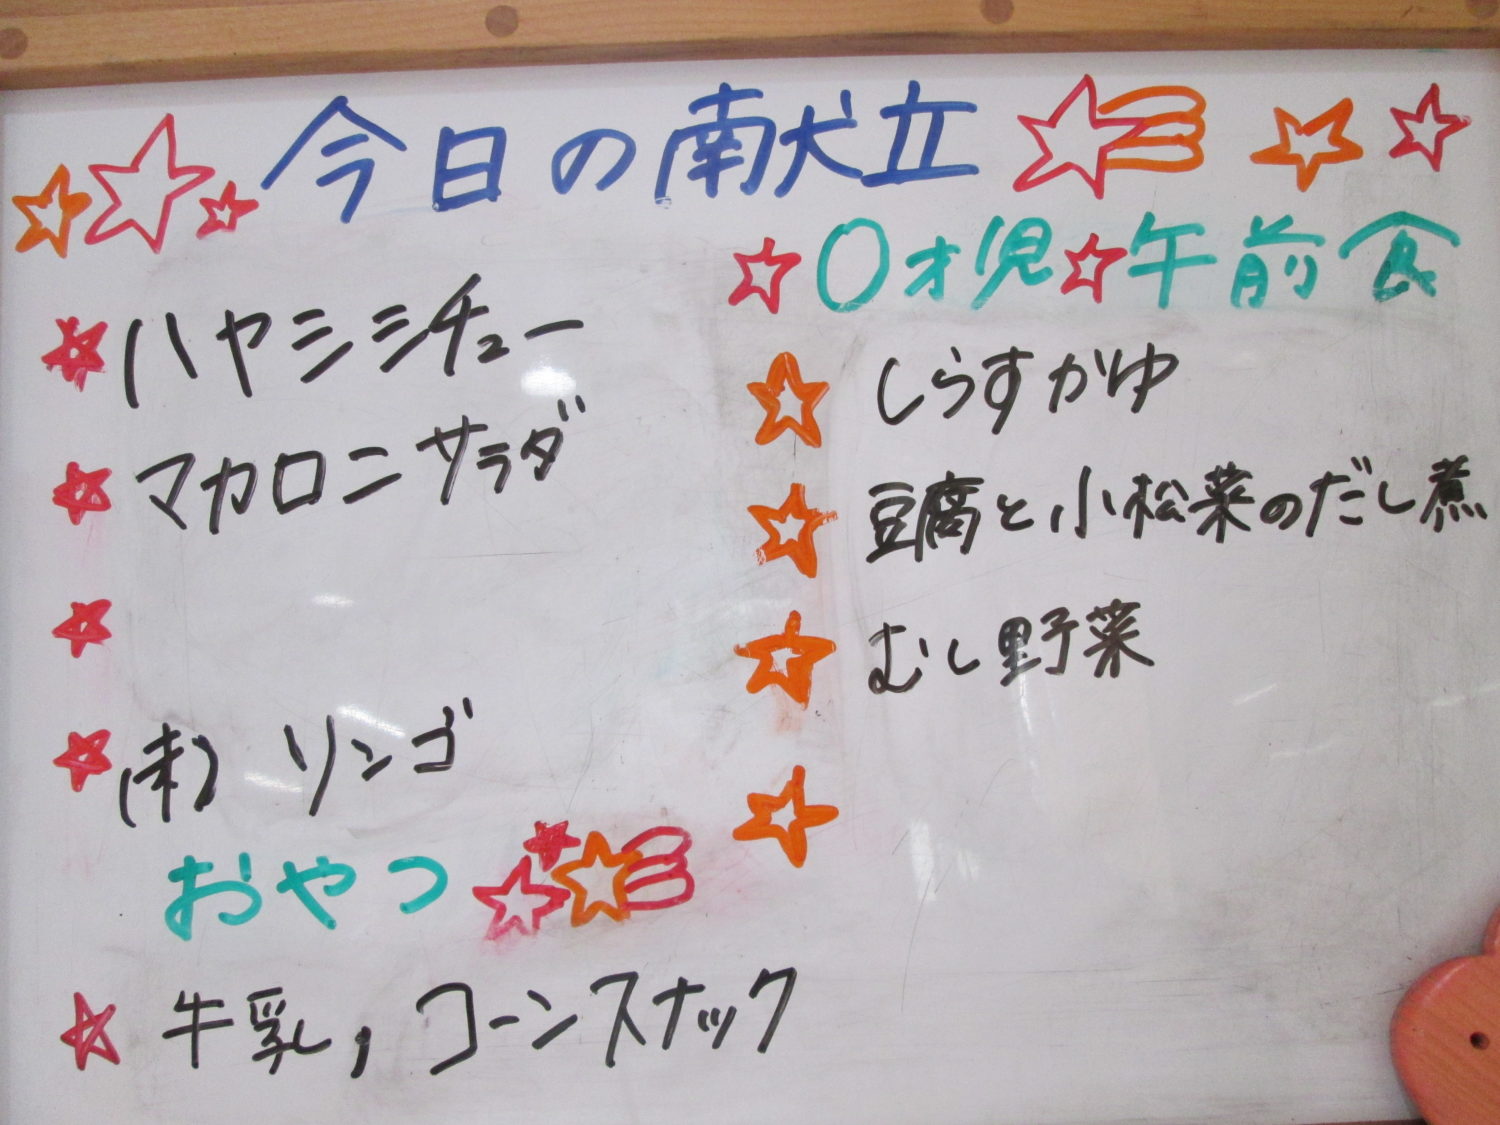 今日の献立
ハヤシシチュー
マカロニサラダ
(果) リンゴ
おやつ
牛乳, コーンスナック
0才児 午前食
しらすがゆ
豆腐と小松菜のだし煮
むし野菜